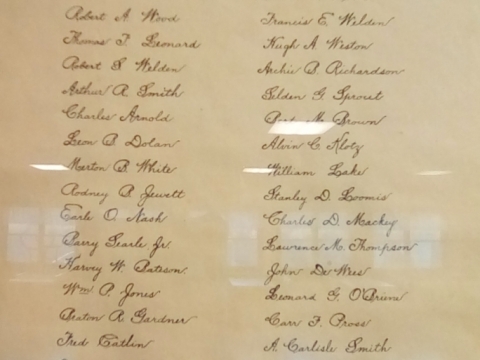 Robert A. Wood
Thomas F. Leonard
Robert S. Welden
Arthur R. Smith
Charles Arnold
Leon B. Dolan
Merton B. White
Rodney B. Jewett
Earle O. Nash
Parry Searle Jr.
Harvey W. Batson.
Wm P. Jones
Seaton R. Gardner
Fred Catlin
Francis E. Welden
Hugh A. Weston
Archie B. Richardson
Selden G. Sprout
M. Brown
Alvin C. Klotz
William Lake
Stanley D. Loomis
Charles D. Mackey
Lawrence M. Thompson
John De Wees
Leonard G. O'Briene
Carr F. Pross
A. Carlisle Smith